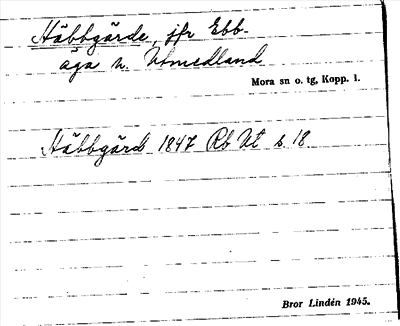 Häbbgärde, jfr Ebb-
äga n. Utmedland
Mora sn o. tg, Kopp. l.
Häbbgärd 1847 Rb Ut s. 18
Bror Lindén 1945.